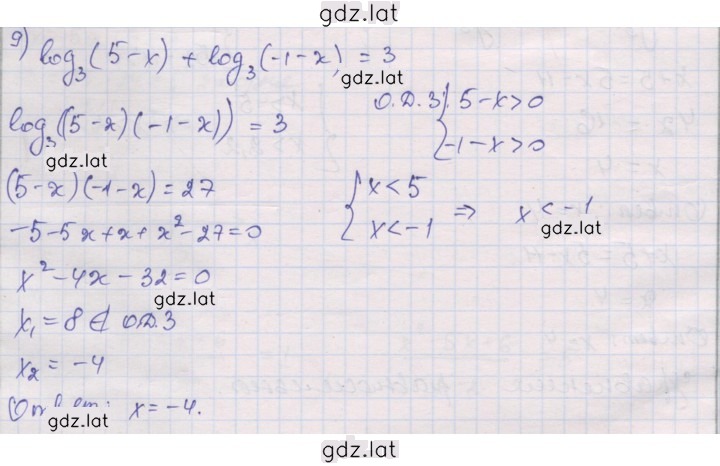 gdz.lat
9) log₃(5-x) + log₃(-1-x) = 3
gdz.lat
log₃((5-x)(-1-x)) = 3
О.Д.З. { 5-x>0
-1-x>0
gdz.lat
(5-x)(-1-x) = 27
{ x<5
x<-1 ⇒ x<-1
gdz.lat
-5-5x+x+x²-27=0
x²-4x-32=0
gdz.lat
x₁=8 ∉ О.Д.З
x₂ = -4
Ответ: x=-4.
gdz.lat
gdz.lat